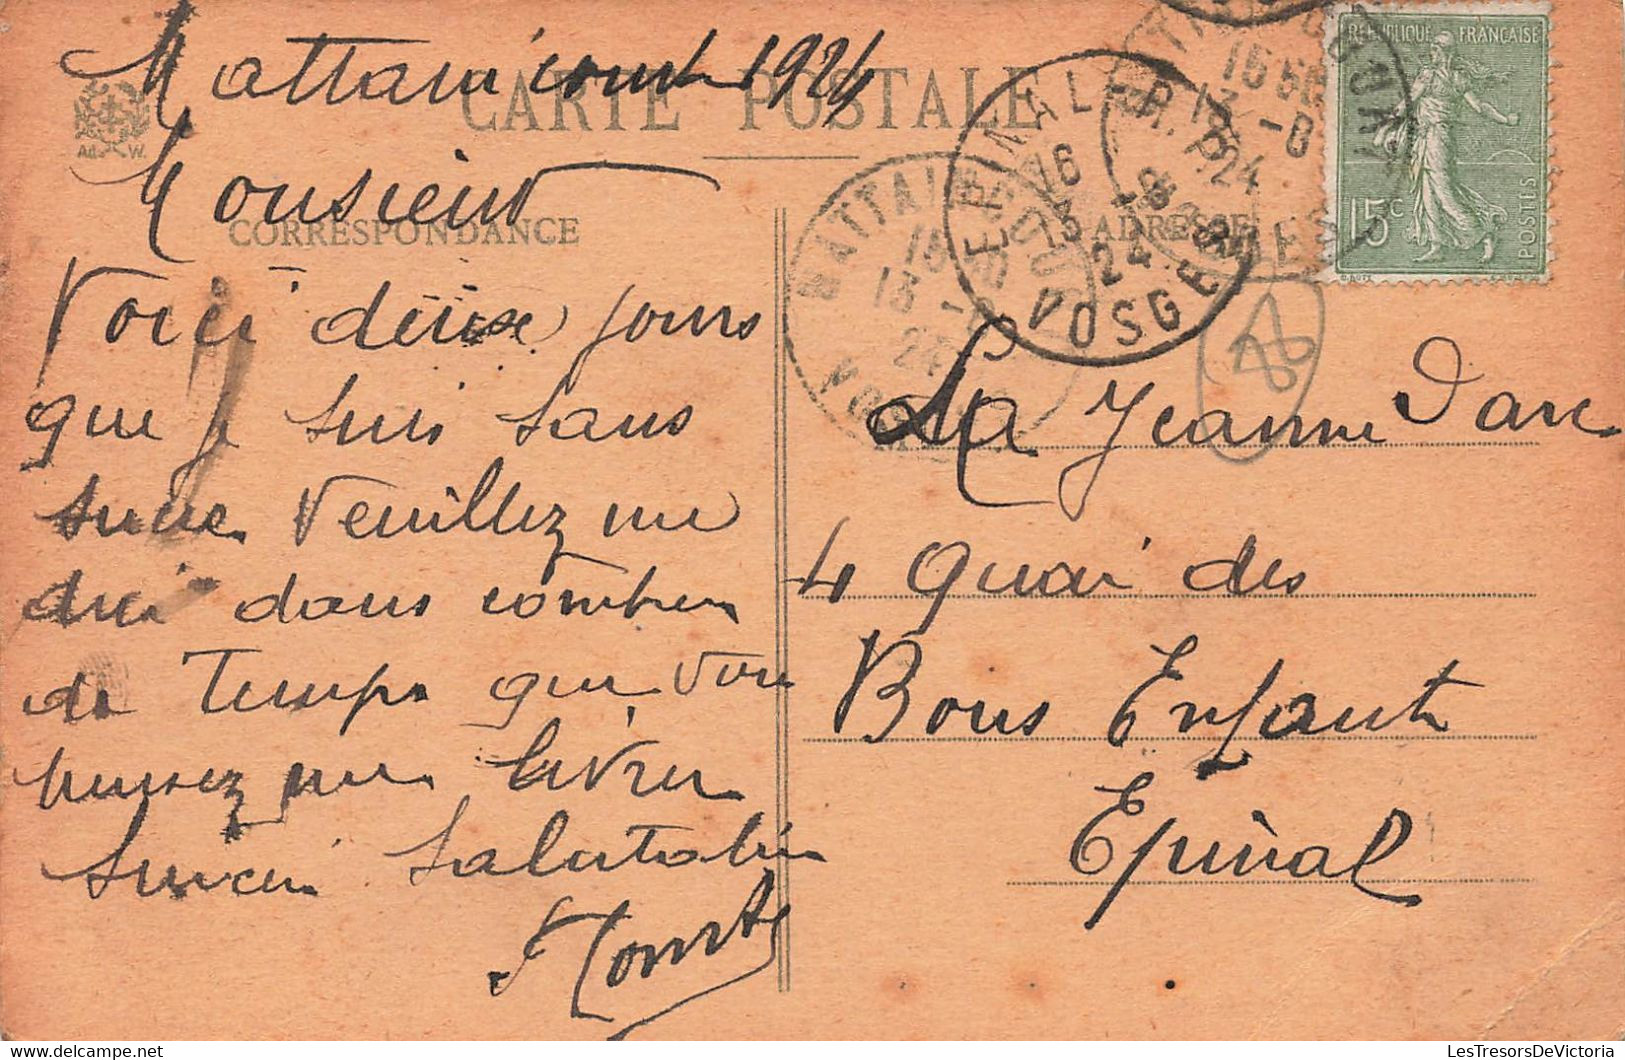 Mattaincourt 1924
CARTE POSTALE
Monsieur
CORRESPONDANCE
ADRESSE
Voici deux jours
que je suis sans
sucre Veuillez me
dire dans combien
de Temps que vous
puissez me livrer
Salutation
F Comte
La Jeanne Darc
4 Quai des
Bons Enfants
Epinal
Ad. W.
MATTAINCOURT
15
13 -8
24
VOSGES
EPINAL
16
13 -8
24
VOSGES
15
13 -8
24
REPUBLIQUE FRANÇAISE
15c
POSTES
LesTresorsDeVictoria